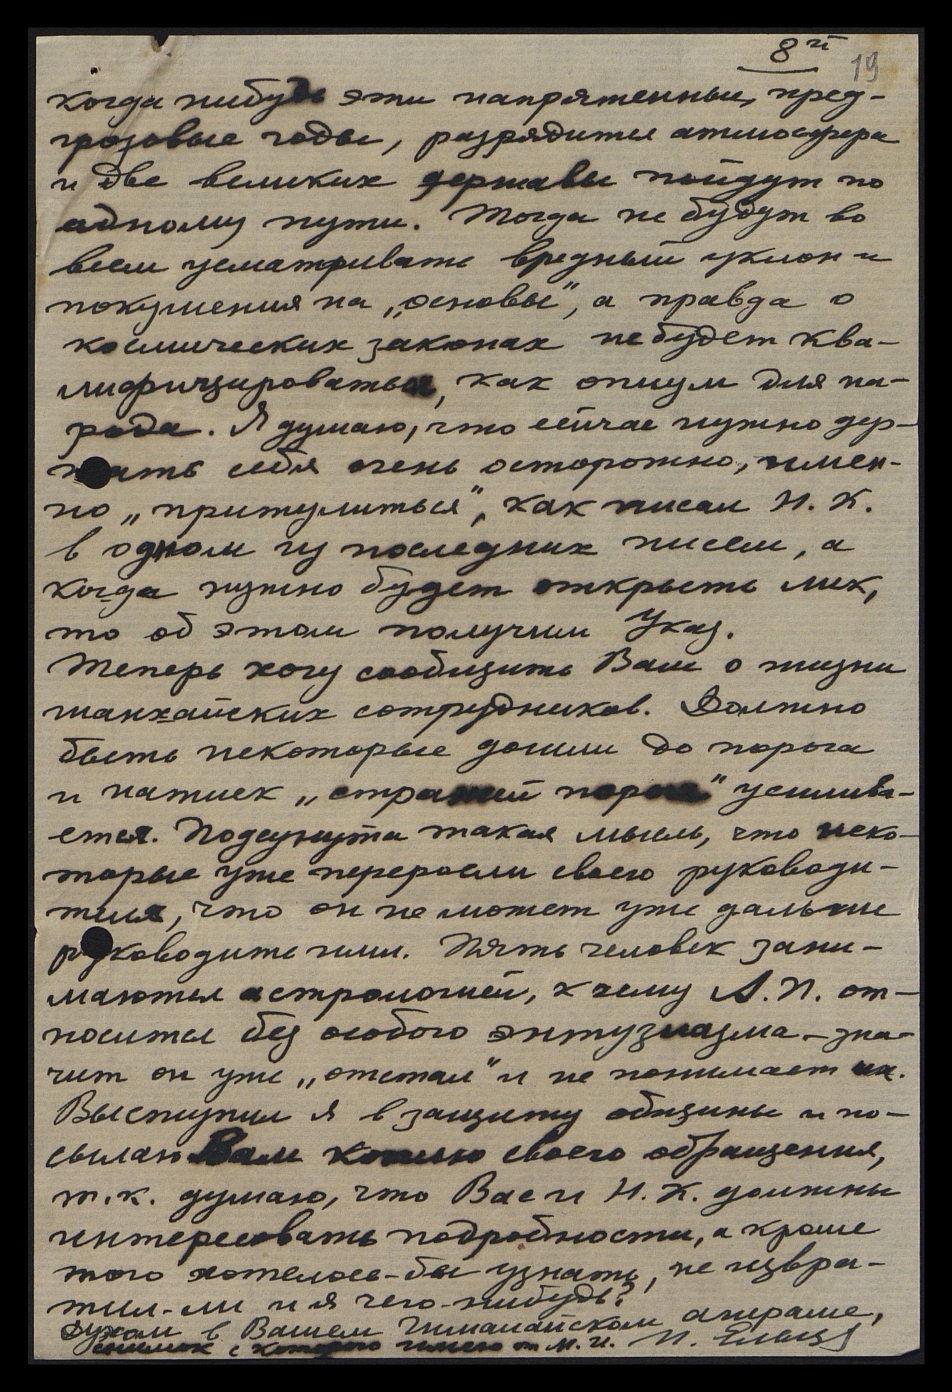 8й
19
когда нибудь эти напряженные, пред-
грозовые годы, разрядится атмосфера
и две великих державы пойдут по
одному пути. Тогда не будут во
всем усматривать вредный уклон и
покушения на „основы", а правда о
космических законах не будет ква-
лифицироваться, как опиум для на-
рода. Я думаю, что сейчас нужно дер-
жать себя очень осторожно, имен-
но „притулиться", как писал Н. К.
в одном из последних писем, а
когда нужно будет открыть лик,
то об этом получим Указ.
Теперь хочу сообщить Вам о жизни
шанхайских сотрудников. Должно
быть некоторые дошли до порога
и натиск „стражей порога" усилива-
ется. Подсунута такая мысль, что неко-
торые уже переросли своего руководи-
теля, что он не может уже дальше
руководить ими. Пять человек зани-
маются астрологией, к чему А. П. от-
носится без особого энтузиазма – зна-
чит он уже „отстал" и не понимает их.
Выступил я в защиту общины и по-
сылаю Вам копию своего обращения,
т. к. думаю, что Вас и Н. К. должны
интересовать подробности, а кроме
того хотелось-бы узнать, не извра-
тил-ли и я чего-нибудь?
Духом в Вашем Гималайском ашраме,
снимок с которого имею от М. И.